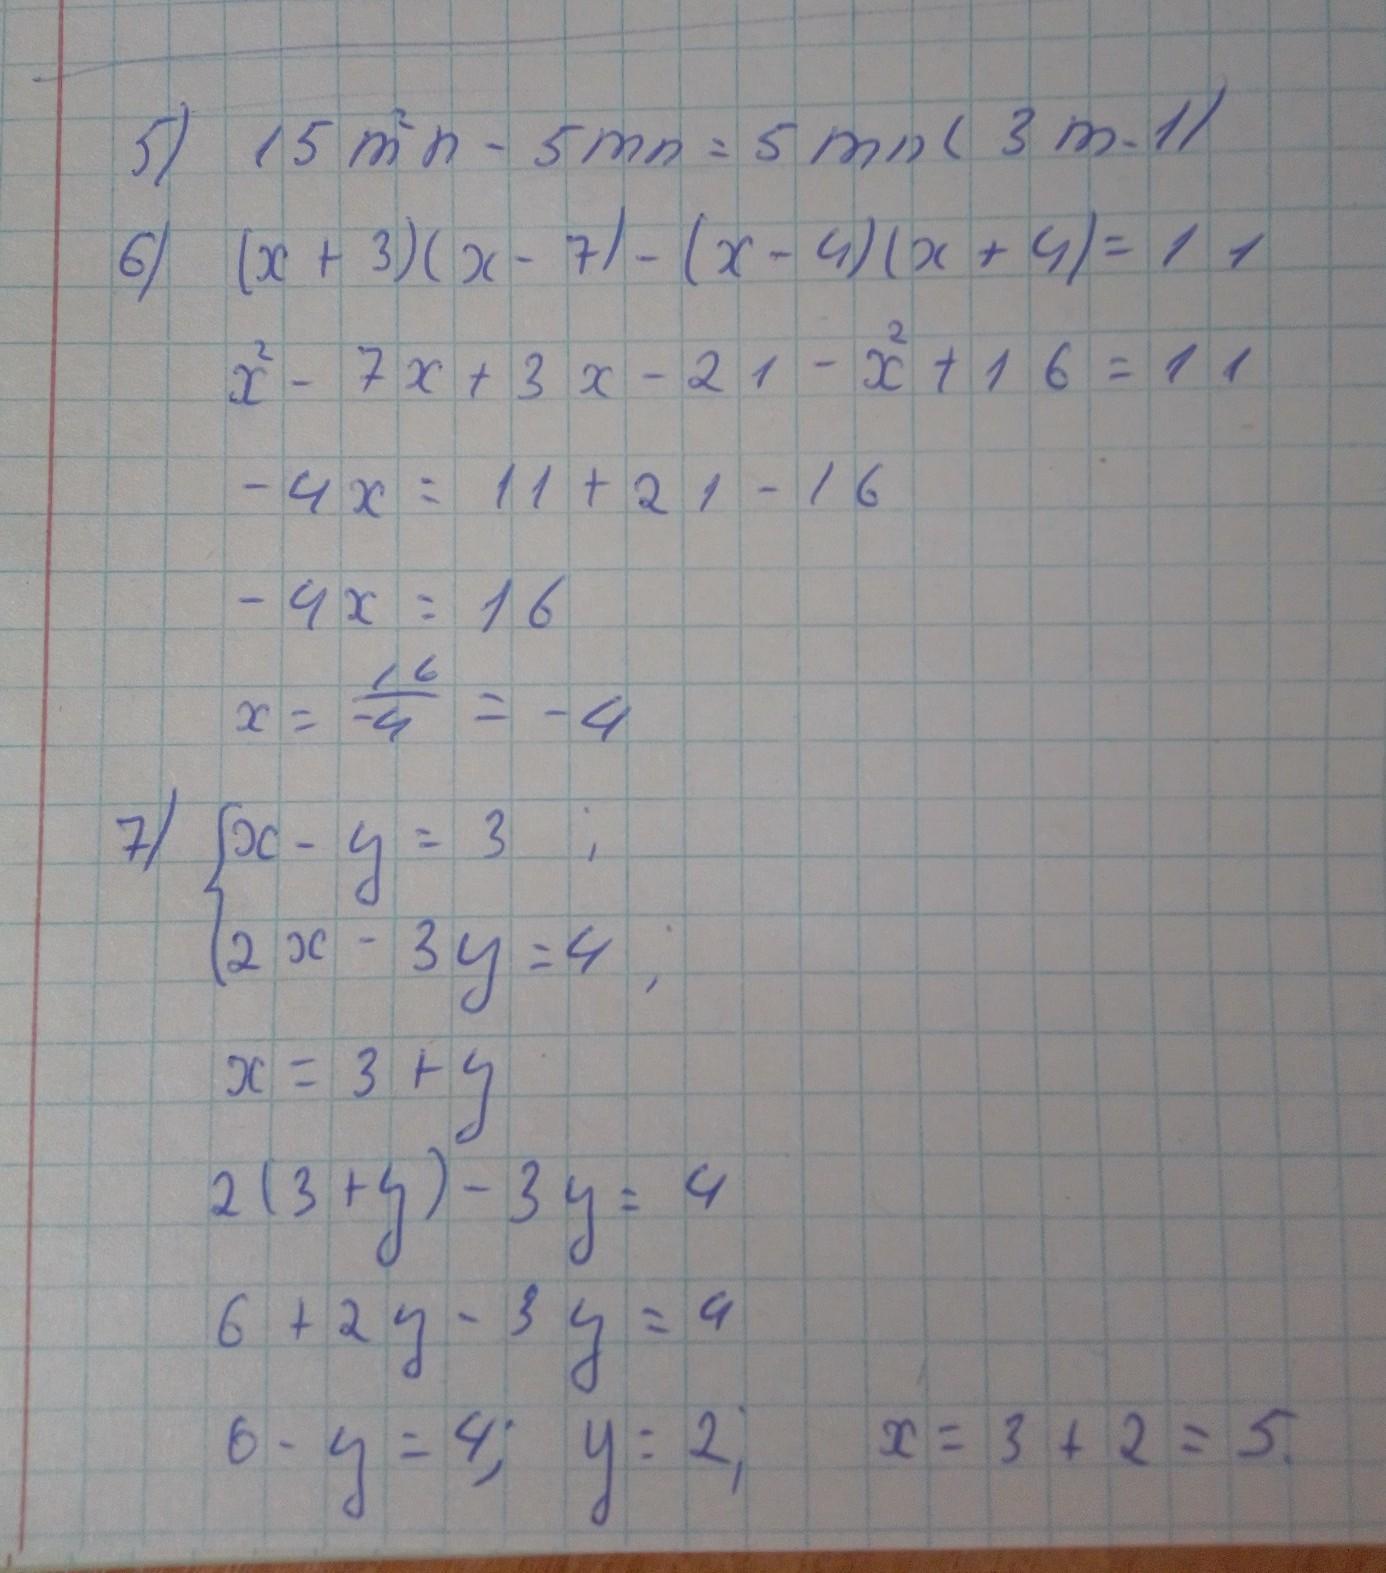 5) 15m²n - 5mn = 5mn(3m-1)
6) (x + 3)(x - 7) - (x - 4)(x + 4) = 11
x² - 7x + 3x - 21 - x² + 16 = 11
-4x = 11 + 21 - 16
-4x = 16
x = 16/-4 = -4
7) { x - y = 3 ;
2x - 3y = 4 ;
x = 3 + y
2(3 + y) - 3y = 4
6 + 2y - 3y = 4
6 - y = 4; y = 2; x = 3 + 2 = 5.